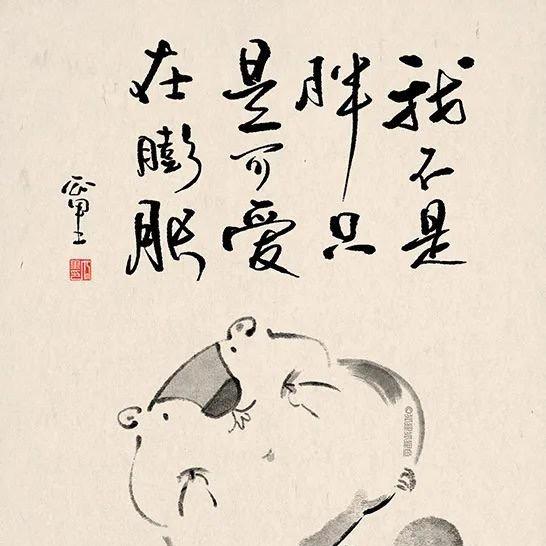 我不是
胖只
是可爱
在膨胀